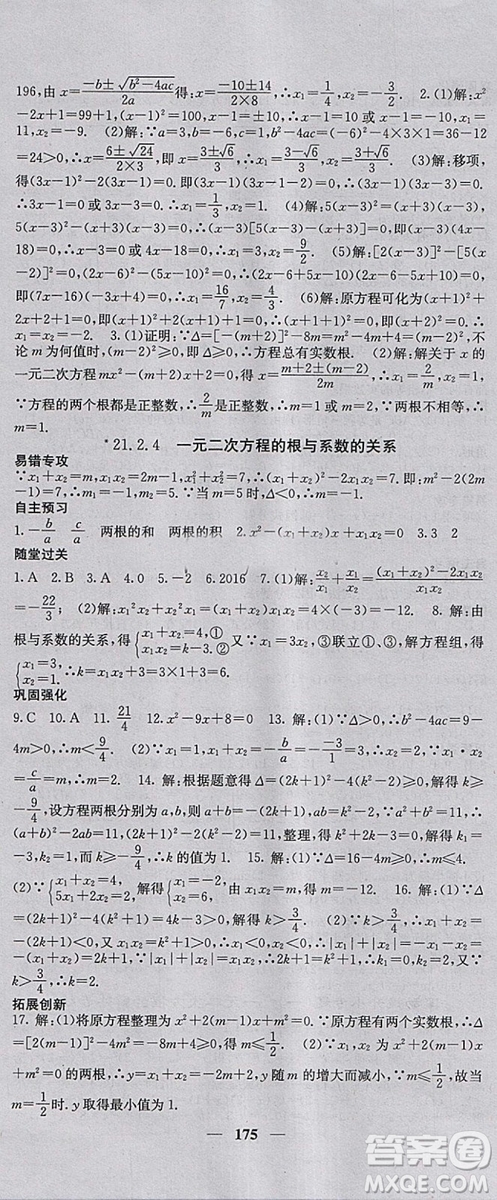 196,由 x=\frac{-b±\sqrt{b²-4ac}}{2a}得:x=\frac{-10±14}{2×8},∴x₁=\frac{1}{4},x₂=-\frac{3}{2}. 2.(1)解:x²
-2x+1=99+1,(x-1)²=100,x-1=±10,∴x-1=10或x-1=-10,∴x₁=11,
x₂=-9. (2)解:∵a=3,b=-6,c=1,∴Δ=b²-4ac=(-6)²-4×3×1=36-12
=24>0,∴x=\frac{6±\sqrt{24}}{2×3},即x=\frac{3±\sqrt{6}}{3},∴x₁=\frac{3-\sqrt{6}}{3},x₂=\frac{3+\sqrt{6}}{3}. (3)解:移项,
得(3x-1)²-2(3x-1)=0.即(3x-1)(3x-1-2)=0.∴(3x-1)(x-1)=0.
∴3x-1=0或x-1=0,∴x₁=\frac{1}{3},x₂=1. (4)解:5(x-3)²=(x+3)(x-3),
5(x-3)²-(x+3)(x-3)=0,∴(x-3)[5(x-3)-(x+3)]=0,即(x-3)(4x-
18)=0,∴x-3=0或4x-18=0,∴x₁=3,x₂=\frac{9}{2}. (5)解:∵[2(x-3)]²-[5(x
-2)]²=0,∴(2x-6)²-(5x-10)²=0,∴(2x-6+5x-10)(2x-6-5x+10)=0,
即(7x-16)(-3x+4)=0,∴x₁=\frac{16}{7},x₂=\frac{4}{3}. (6)解:原方程可化为(x+1)²+
2(x+1)+1=0,即(x+1)²+2(x+1)+1=0,∴[(x+1)+1]²=0,即(x+2)²=0,
∴x₁=x₂=-2. 3.(1)证明:∵Δ=[-(m+2)]²-8m=m²-4m+4=(m-2)²,不
论m为何值时,(m-2)²≥0,即Δ≥0,∴方程总有实数根. (2)解:解关于x的
一元二次方程mx²-(m+2)x+2=0,得x=\frac{m+2±(m-2)}{2m},∴x₁=\frac{2}{m},x₂=1.
∵方程的两个根都是正整数,∴\frac{2}{m}是正整数,∴m=1或m=2.
*21.2.4 一元二次方程的根与系数的关系
易错专攻
∵x₁+x₂=m,x₁x₂=2m-1,∴x₁²+x₂²=(x₁+x₂)²-2x₁x₂=7.即:m²-2(2m
-1)=7,∴m₁=-1,m₂=5.∵当m=5时,Δ<0,∴m=-1.
自主预习
1.-\frac{b}{a} \frac{c}{a} 两根的和 两根的积 2.x²-(x₁+x₂)x+x₁x₂=0 3.3 2
随堂过关
1.A 2.B 3.A 4.0 5.-2 6.2016 7.(1)解:\frac{x₂}{x₁}+\frac{x₁}{x₂}=\frac{(x₁+x₂)²-2x₁x₂}{x₁x₂}
=-\frac{22}{3}; (2)解:x₁²-x₁x₂+x₂²=(x₁+x₂)²-3x₁x₂=16+9=25. 8.解:由
根与系数的关系,得{x₁+x₂=4,① x₁x₂=k.② 又∵x₁=3x₂,③联立①、③,解方程组,得
{x₁=3, x₂=1. ∴k=x₁x₂+3=3×1+3=6.
巩固强化
9.C 10.A 11.\frac{21}{4} 12.x²-9x+8=0 13.解:(1)∵Δ>0,∴b²-4ac=9-
4m>0,∴m<\frac{9}{4}. (2)∵x₁+x₂=-\frac{b}{a}=-3,x₁=1,∴x₂=-4,∴m=x₁·x₂
=\frac{c}{a}=-4. 14.解:根据题意得Δ=(2k+1)²-4(k²-2)≥0,解得k≥-
\frac{9}{4},设方程两根分别为a,b,则a+b=-(2k+1),ab=k²-2,∵a²+b²=11,∴
(a+b)²-2ab=11,∴(2k+1)²-2(k²-2)=11,整理得k²+2k-3=0,解得k₁=
-3,k₂=1.∵k≥-\frac{9}{4},∴k的值为1. 15.解:(1)∵Δ=16-4m≥0,∴m≤4.
(2)∵{x₁+x₂=4, 5x₁+2x₂=2, ∴{x₁=-2, x₂=6, ∵x₁x₂=m,∴m=-12. 16.解:(1)∵Δ
=(2k+1)²-4(k²+1)=4k-3>0,∴k>\frac{3}{4}. (2)∵k>\frac{3}{4},∴x₁+x₂=
-(2k+1)<0.又∵x₁x₂=k²+1>0,∴x₁<0,x₂<0,∴|x₁|+|x₂|=-x₁-x₂=
-(x₁+x₂)=2k+1.∵|x₁|+|x₂|=x₁·x₂,∴2k+1=k²+1,∴k=0或2,又∵k>
\frac{3}{4},∴k=2.
拓展创新
17.解:(1)将原方程整理为x²+2(m-1)x+m²=0.∵原方程有两个实数根,∴Δ
=[2(m-1)]²-4m²=-8m+4≥0,∴m≤\frac{1}{2}. (2)∵x₁,x₂为x²+2(m-1)x+
m²=0的两根,∴y=x₁+x₂=-2m+2.则y随m的增大而减小,∵m≤\frac{1}{2},故当
m=\frac{1}{2}时.y取得最小值为1.
175
作业精灵